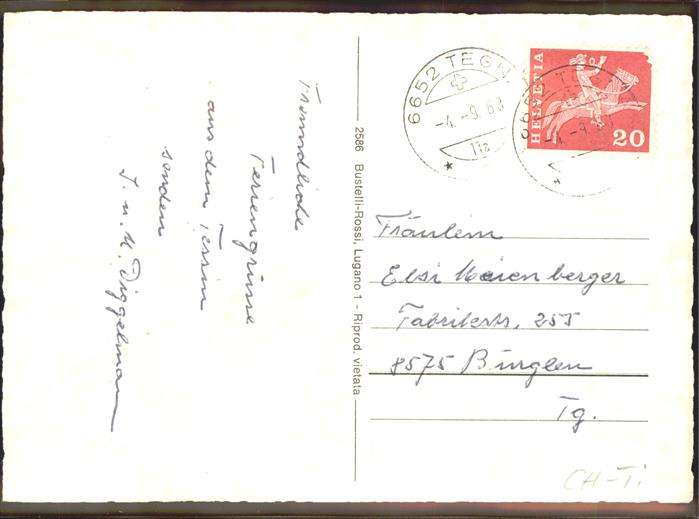 Freundliche
Feriengrüsse
aus dem Tessin
senden
J. u. M. Diggelmann
2586 Bustelli-Rossi, Lugano 1 - Riprod. vietata
6652 TEGN
-4.-9.68
11a
HELVETIA
20
Fräulein
Elsi Meienberger
Fabrikstr. 255
8575 Bürglen
Tg.
CH-Ti